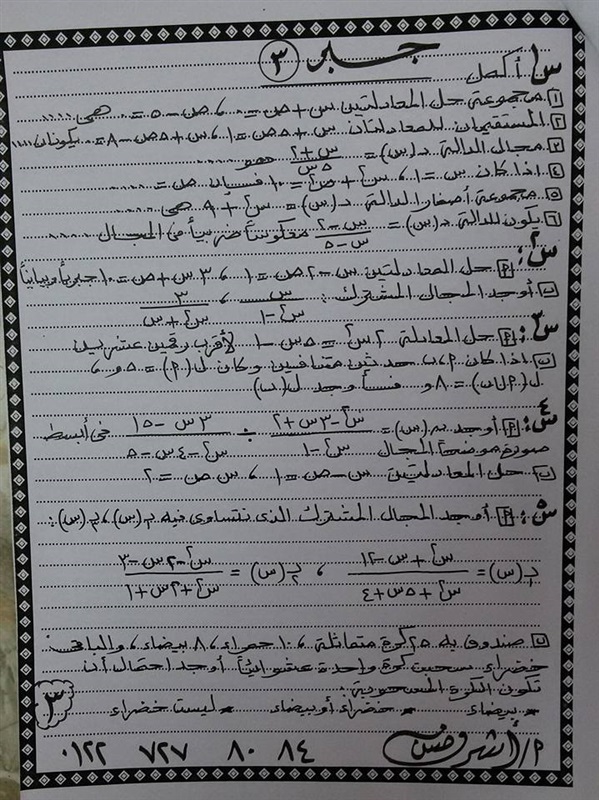 جبر ٣
س١ أكمل
١ مجموعة حل المعادلتين س + ص = ٠ ، ص - ٥ = ٠ هى ......
٢ المستقيمان للمعادلتان س + ٥ص = ١ ، س + ٥ص - ٨ = ٠ يكونان ......
٣ مجال الدالة د(س) = (س + ٢)/(٥س) هو ......
٤ اذا كان س = ١ ، س٢ + ص٢ = ١٠ فإن ص = ......
٥ مجموعة أصفار الدالة د(س) = س٢ + ٩ هى ......
٦ يكون للدالة د(س) = (س - ٢)/(س - ٥) معكوساً ضربياً فى المجال ......
س٢:
P حل المعادلتين س - ٢ص = ١ ، ٣س + ص = ١٠ جبرياً وبيانياً
ب أوجد المجال المشترك : س/(س٢ - ١) ، ٣/(س٢ + س)
س٣: P حل المعادلة ٢س٢ = ٥س - ١ لأقرب رقمين عشريين
ب اذا كان P ، ب حدثين متنافيين وكان ل(P) = ٥و ،
ل(P ∪ ب) = ٨و فأوجد ل(ب)
س٤: P أوجد ن(س) = (س٢ - ٣س + ٢)/(س٢ - ١) ÷ (٣س - ١٥)/(س٢ - ٤س - ٥) فى أبسط
صورة موضحاً المجال
ب حل المعادلتين س - ص = ١ ، س ص = ٢
س٥: P أوجد المجال المشترك الذى تتساوى فيه ن١(س) ، ن٢(س) :
ن١(س) = (س٢ + س - ١٢)/(س٢ + ٥س + ٤) ، ن٢(س) = (س٢ - ٢س - ٣)/(س٢ + ٢س + ١)
ب صندوق به ٢٥ كرة متماثلة ، ١٠ حمراء ، ٨ بيضاء ، والباقى
خضراء سحبت كرة واحدة عشوائياً أوجد احتمال أن
تكون الكرة المسحوبة :
* بيضاء * خضراء أو بيضاء * ليست خضراء
٣
م/ أشرف حسن ٠١٢٢ ٧٢٧ ٨٠ ٨٤